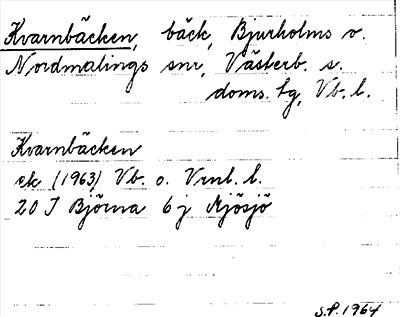 Kvarnbäcken, bäck, Bjurholms o.
Nordmalings snr, Västerb. s.
doms. lg, Vb. l.
Kvarnbäcken
ek (1963) Vb. o. Vrnl. l.
20 I Björna 6 j Mjösjö
S.P. 1964